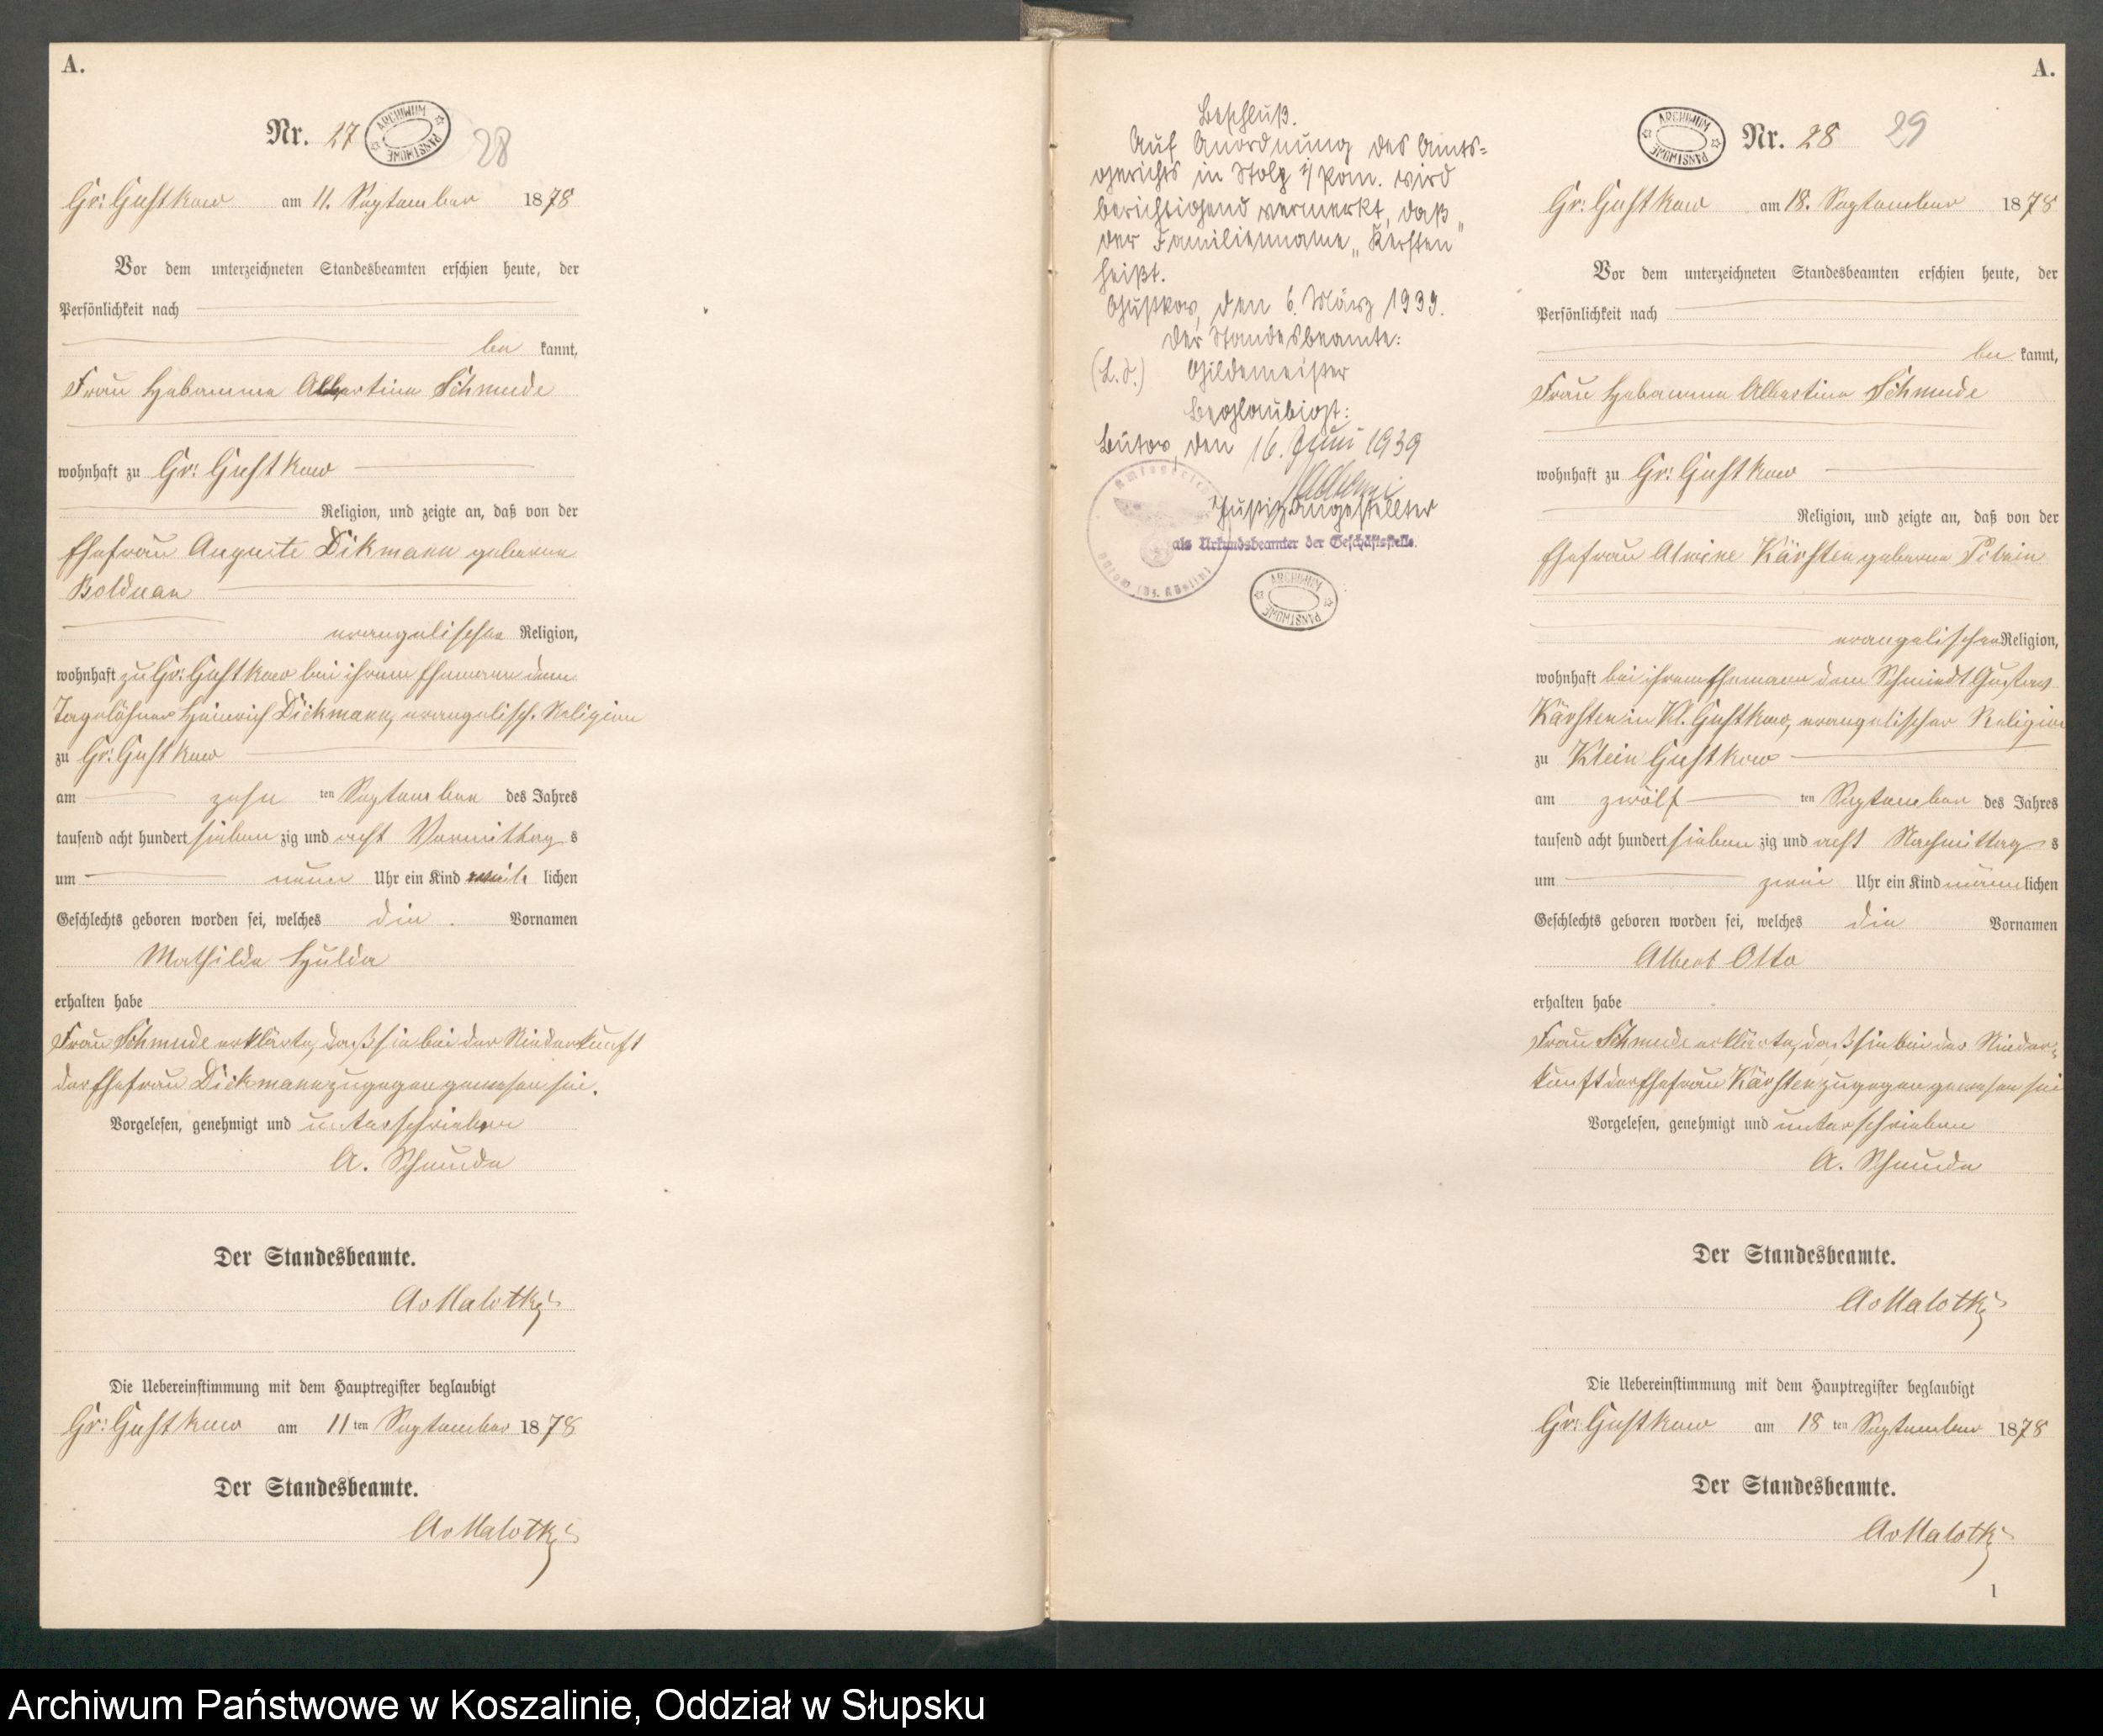 A.
Nr. 27
ARCHIWUM PAŃSTWOWE
28
Gr: Gustkow am 11. September 1878
Vor dem unterzeichneten Standesbeamten erschien heute, der
Persönlichkeit nach
be kannt,
Frau Hebamme Albertine Schmude
wohnhaft zu Gr: Gustkow
Religion, und zeigte an, daß von der
Ehefrau Auguste Dikmann geborene
Bolduan
evangelischer Religion,
wohnhaft zu Gr: Gustkow bei ihrem Ehemann dem
Tagelöhner Heinrich Dickmann, evangelisch. Religion
zu Gr: Gustkow
am zehn ten September des Jahres
tausend acht hundert sieben zig und acht Vormittag s
um neun Uhr ein Kind weib lichen
Geschlechts geboren worden sei, welches die Vornamen
Mathilde Hulda
erhalten habe
Frau Schmude erklärte, daß sie bei der Niederkunft
der Ehefrau Dickmann zugegen gewesen sei.
Vorgelesen, genehmigt und unterschrieben
A. Schmude
Der Standesbeamte.
AvMalotki
Die Uebereinstimmung mit dem Hauptregister beglaubigt
Gr: Gustkow am 11 ten September 1878
Der Standesbeamte.
AvMalotki
Beschluß.
Auf Anordnung des Amts=
gerichts in Stolp i/Pom. wird
berichtigend vermerkt, daß
der Familienname „Kersten"
heißt.
Gustkow, den 6. März 1939.
Der Standesbeamte:
(L.S.) Gildemeister
Beglaubigt:
Bütow, den 16. Juni 1939
Justizangestellter
als Urkundsbeamter der Geschäftsstelle.
Amtsgericht
Bütow (Bz. Köslin)
ARCHIWUM PAŃSTWOWE
A.
ARCHIWUM PAŃSTWOWE
Nr. 28
29
Gr: Gustkow am 18. September 1878
Vor dem unterzeichneten Standesbeamten erschien heute, der
Persönlichkeit nach
be kannt,
Frau Hebamme Albertine Schmude
wohnhaft zu Gr: Gustkow
Religion, und zeigte an, daß von der
Ehefrau Alwine Kärsten geborene
evangelischen Religion,
wohnhaft bei ihrem Ehemann dem Schmiedt Gustav
Kärsten in Kl. Gustkow, evangelischer Religion
zu Klein Gustkow
am zwölf ten September des Jahres
tausend acht hundert sieben zig und acht Nachmittag s
um zwei Uhr ein Kind männ lichen
Geschlechts geboren worden sei, welches die Vornamen
Albert Otto
erhalten habe
Frau Schmude erklärte, daß sie bei der Nieder=
kunft der Ehefrau Kärsten zugegen gewesen sei
Vorgelesen, genehmigt und unterschrieben
A. Schmude
Der Standesbeamte.
AvMalotki
Die Uebereinstimmung mit dem Hauptregister beglaubigt
Gr: Gustkow am 18 ten September 1878
Der Standesbeamte.
AvMalotki
1
Archiwum Państwowe w Koszalinie, Oddział w Słupsku